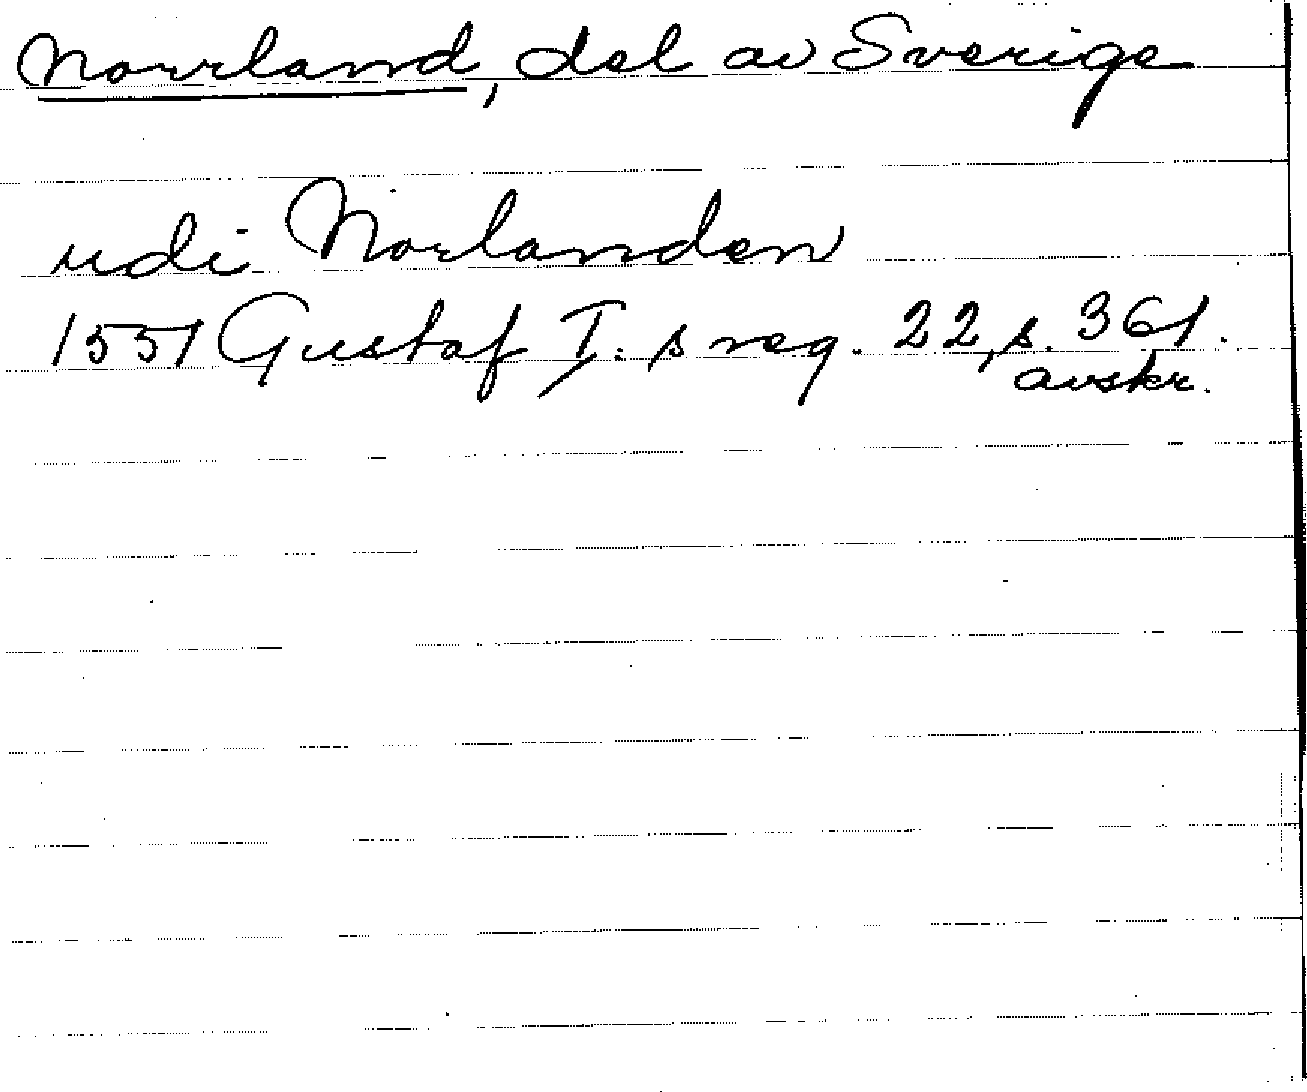 Norrland, del av Sverige
udi Norlanden
1551 Gustaf I:s reg. 22, s. 361.
avskr.